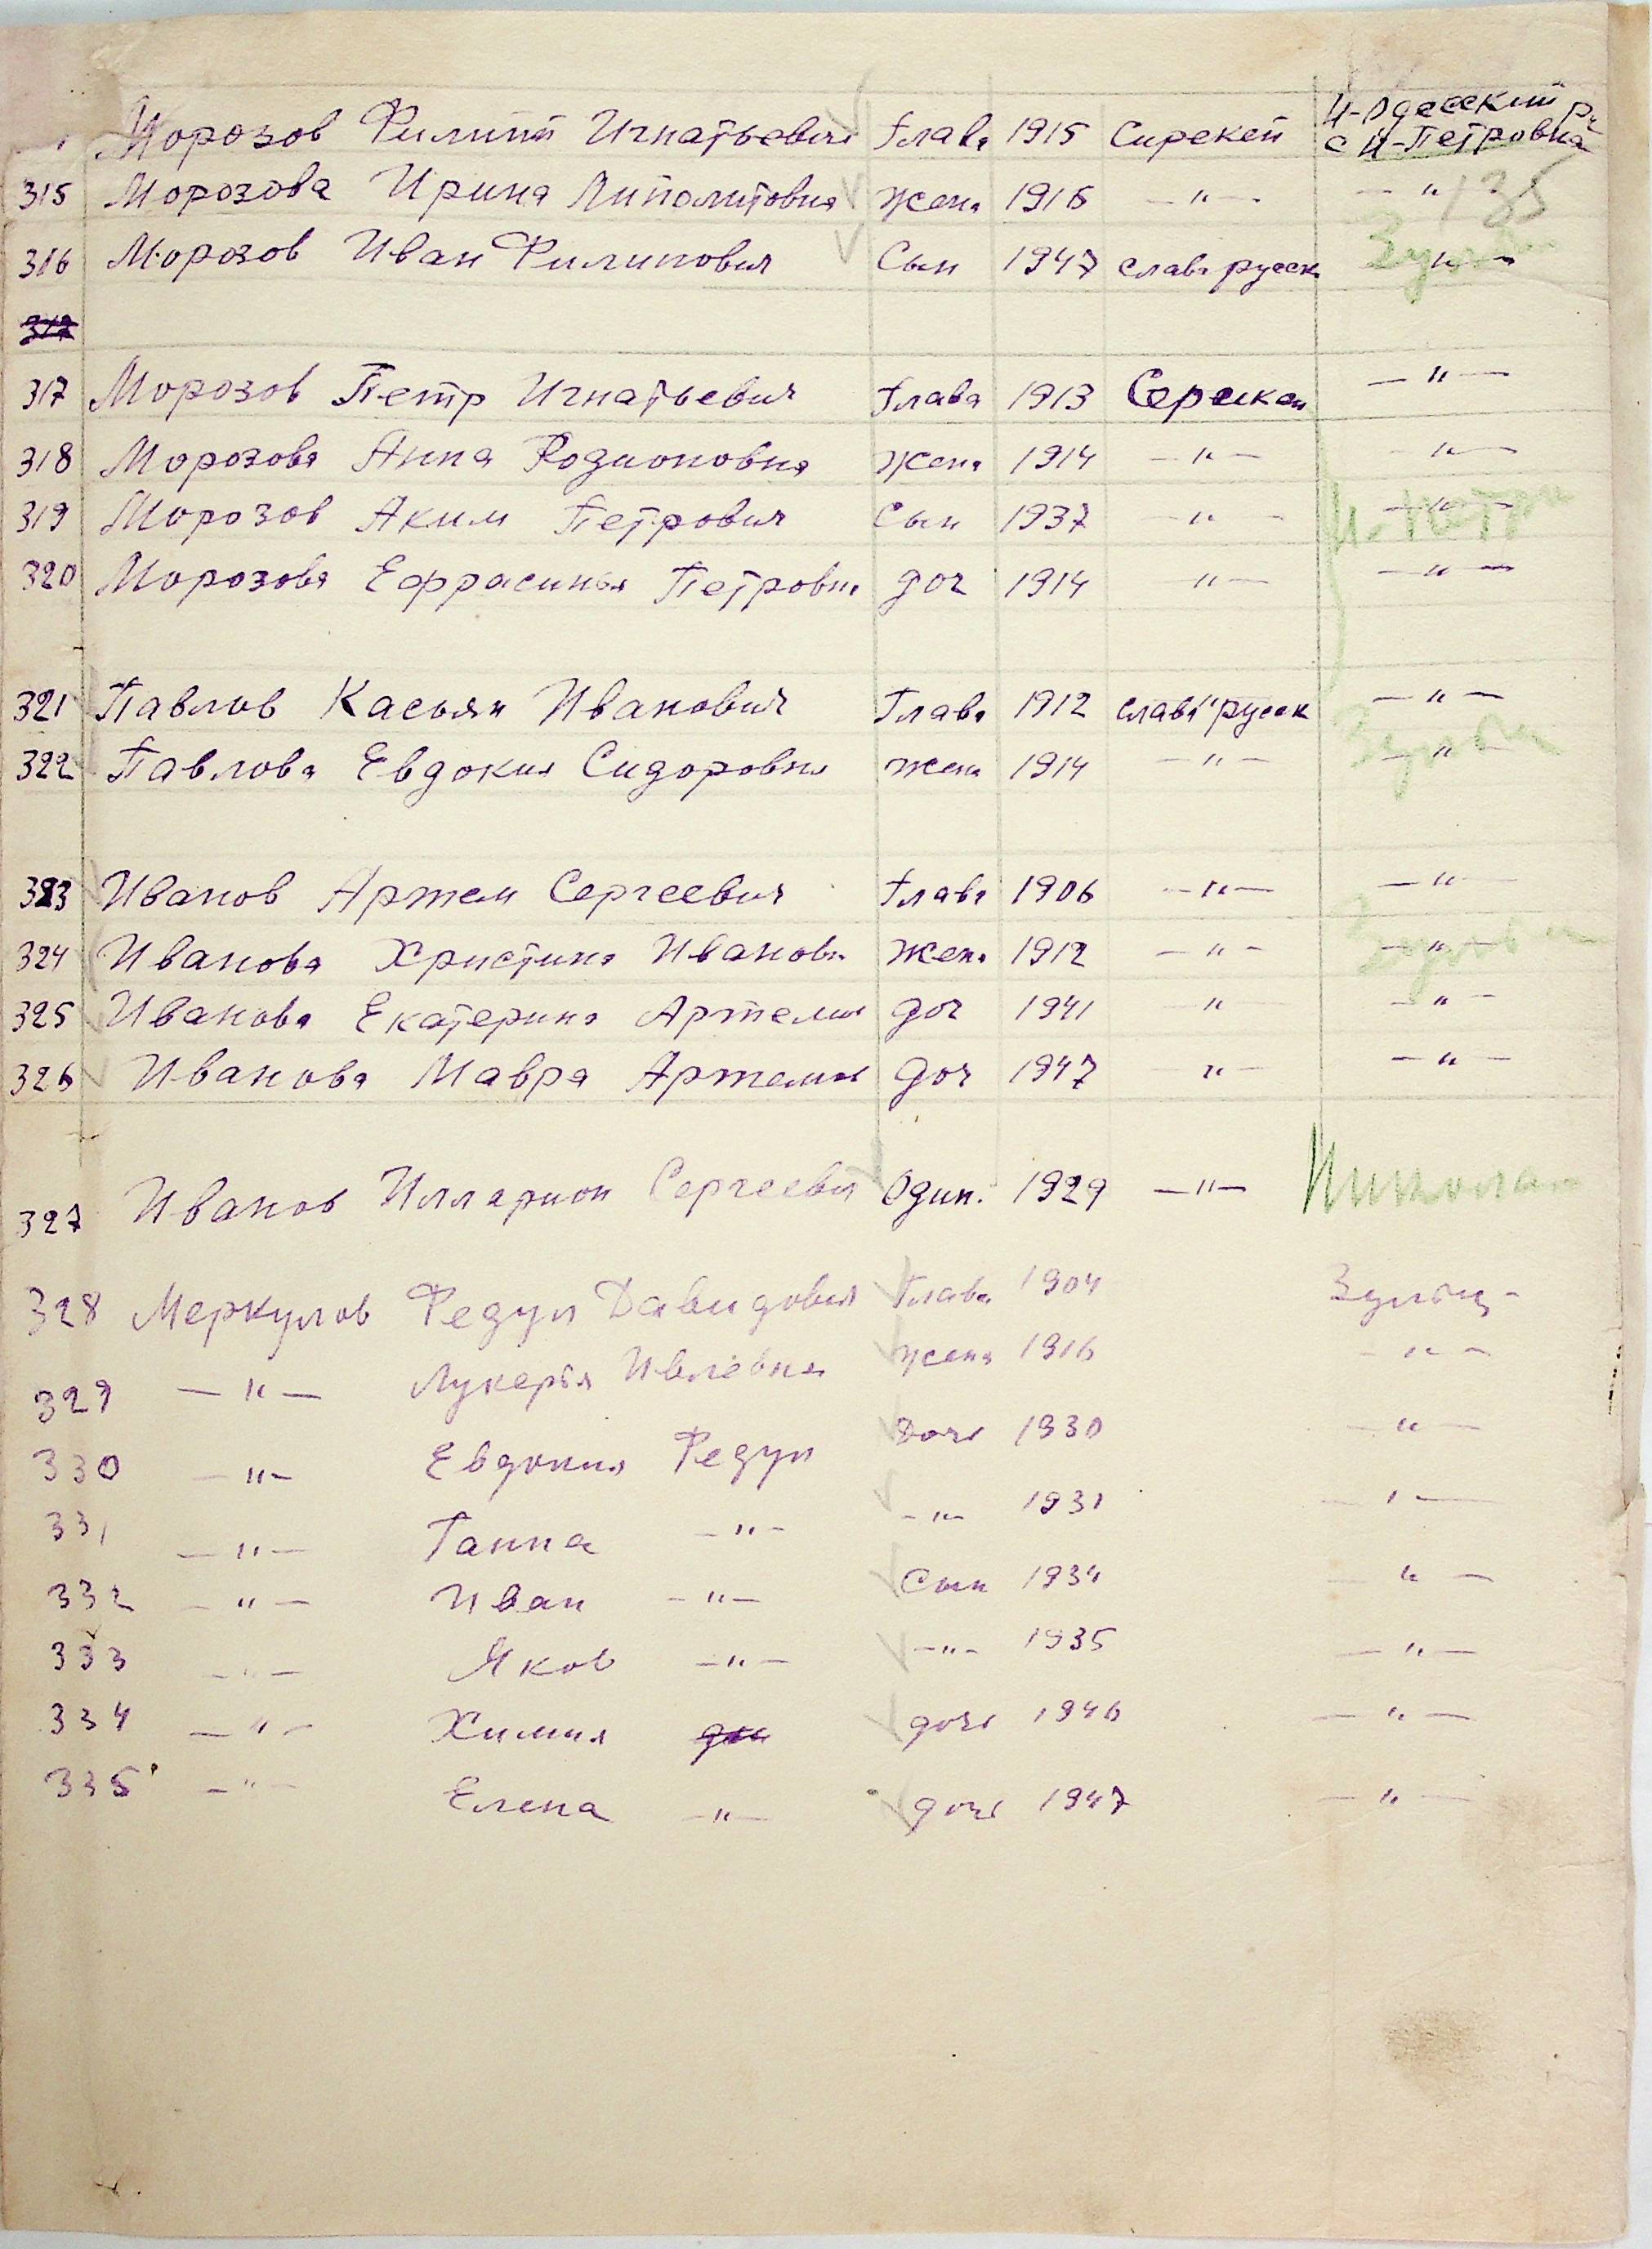 Морозов Филипп Игнатьевич Глава 1915 Сирекей Н-Одесский р. с Н-Петровка
315 Морозова Ирина Липолитовна Жена 1916 — " — — " 135
316 Морозов Иван Филипович Сын 1947 слава русск — " —
317
317 Морозов Петр Игнатьевич Глава 1913 Серекеи — " —
318 Морозова Анна Родионовна жена 1914 — " — — " —
319 Морозов Аким Петрович Сын 1937 — " — — " —
320 Морозова Ефрасинья Петровна доч 1914 " — — " —
321 Павлов Касьян Иванович Глава 1912 слава русск — " —
322 Павлова Евдокия Сидоровна жена 1914 — " — — " —
323 Иванов Артем Сергеевич Глава 1906 — " — — " —
324 Иванова Христина Ивановн Жена 1912 — " — — " —
325 Иванова Екатерина Артемия доч 1941 " — " —
326 Иванова Мавра Артемия доч 1947 " — — " —
327 Иванов Илларион Сергеевич Один. 1929 — " —
328 Меркулов Федул Давидович Глава 1904
329 — " — Лукерья Ивлевна жена 1916 — " —
330 — " — Евдокия Федул Дочь 1930 — " —
331 — " — Ганна — " — — " — 1931 — " —
332 — " — Иван — " — Сын 1934 — " —
333 — " — Яков — " — — " — 1935 — " —
334 — " — Химия дочь 1946 — " —
335 — " — Елена — " — дочь 1947 — " —